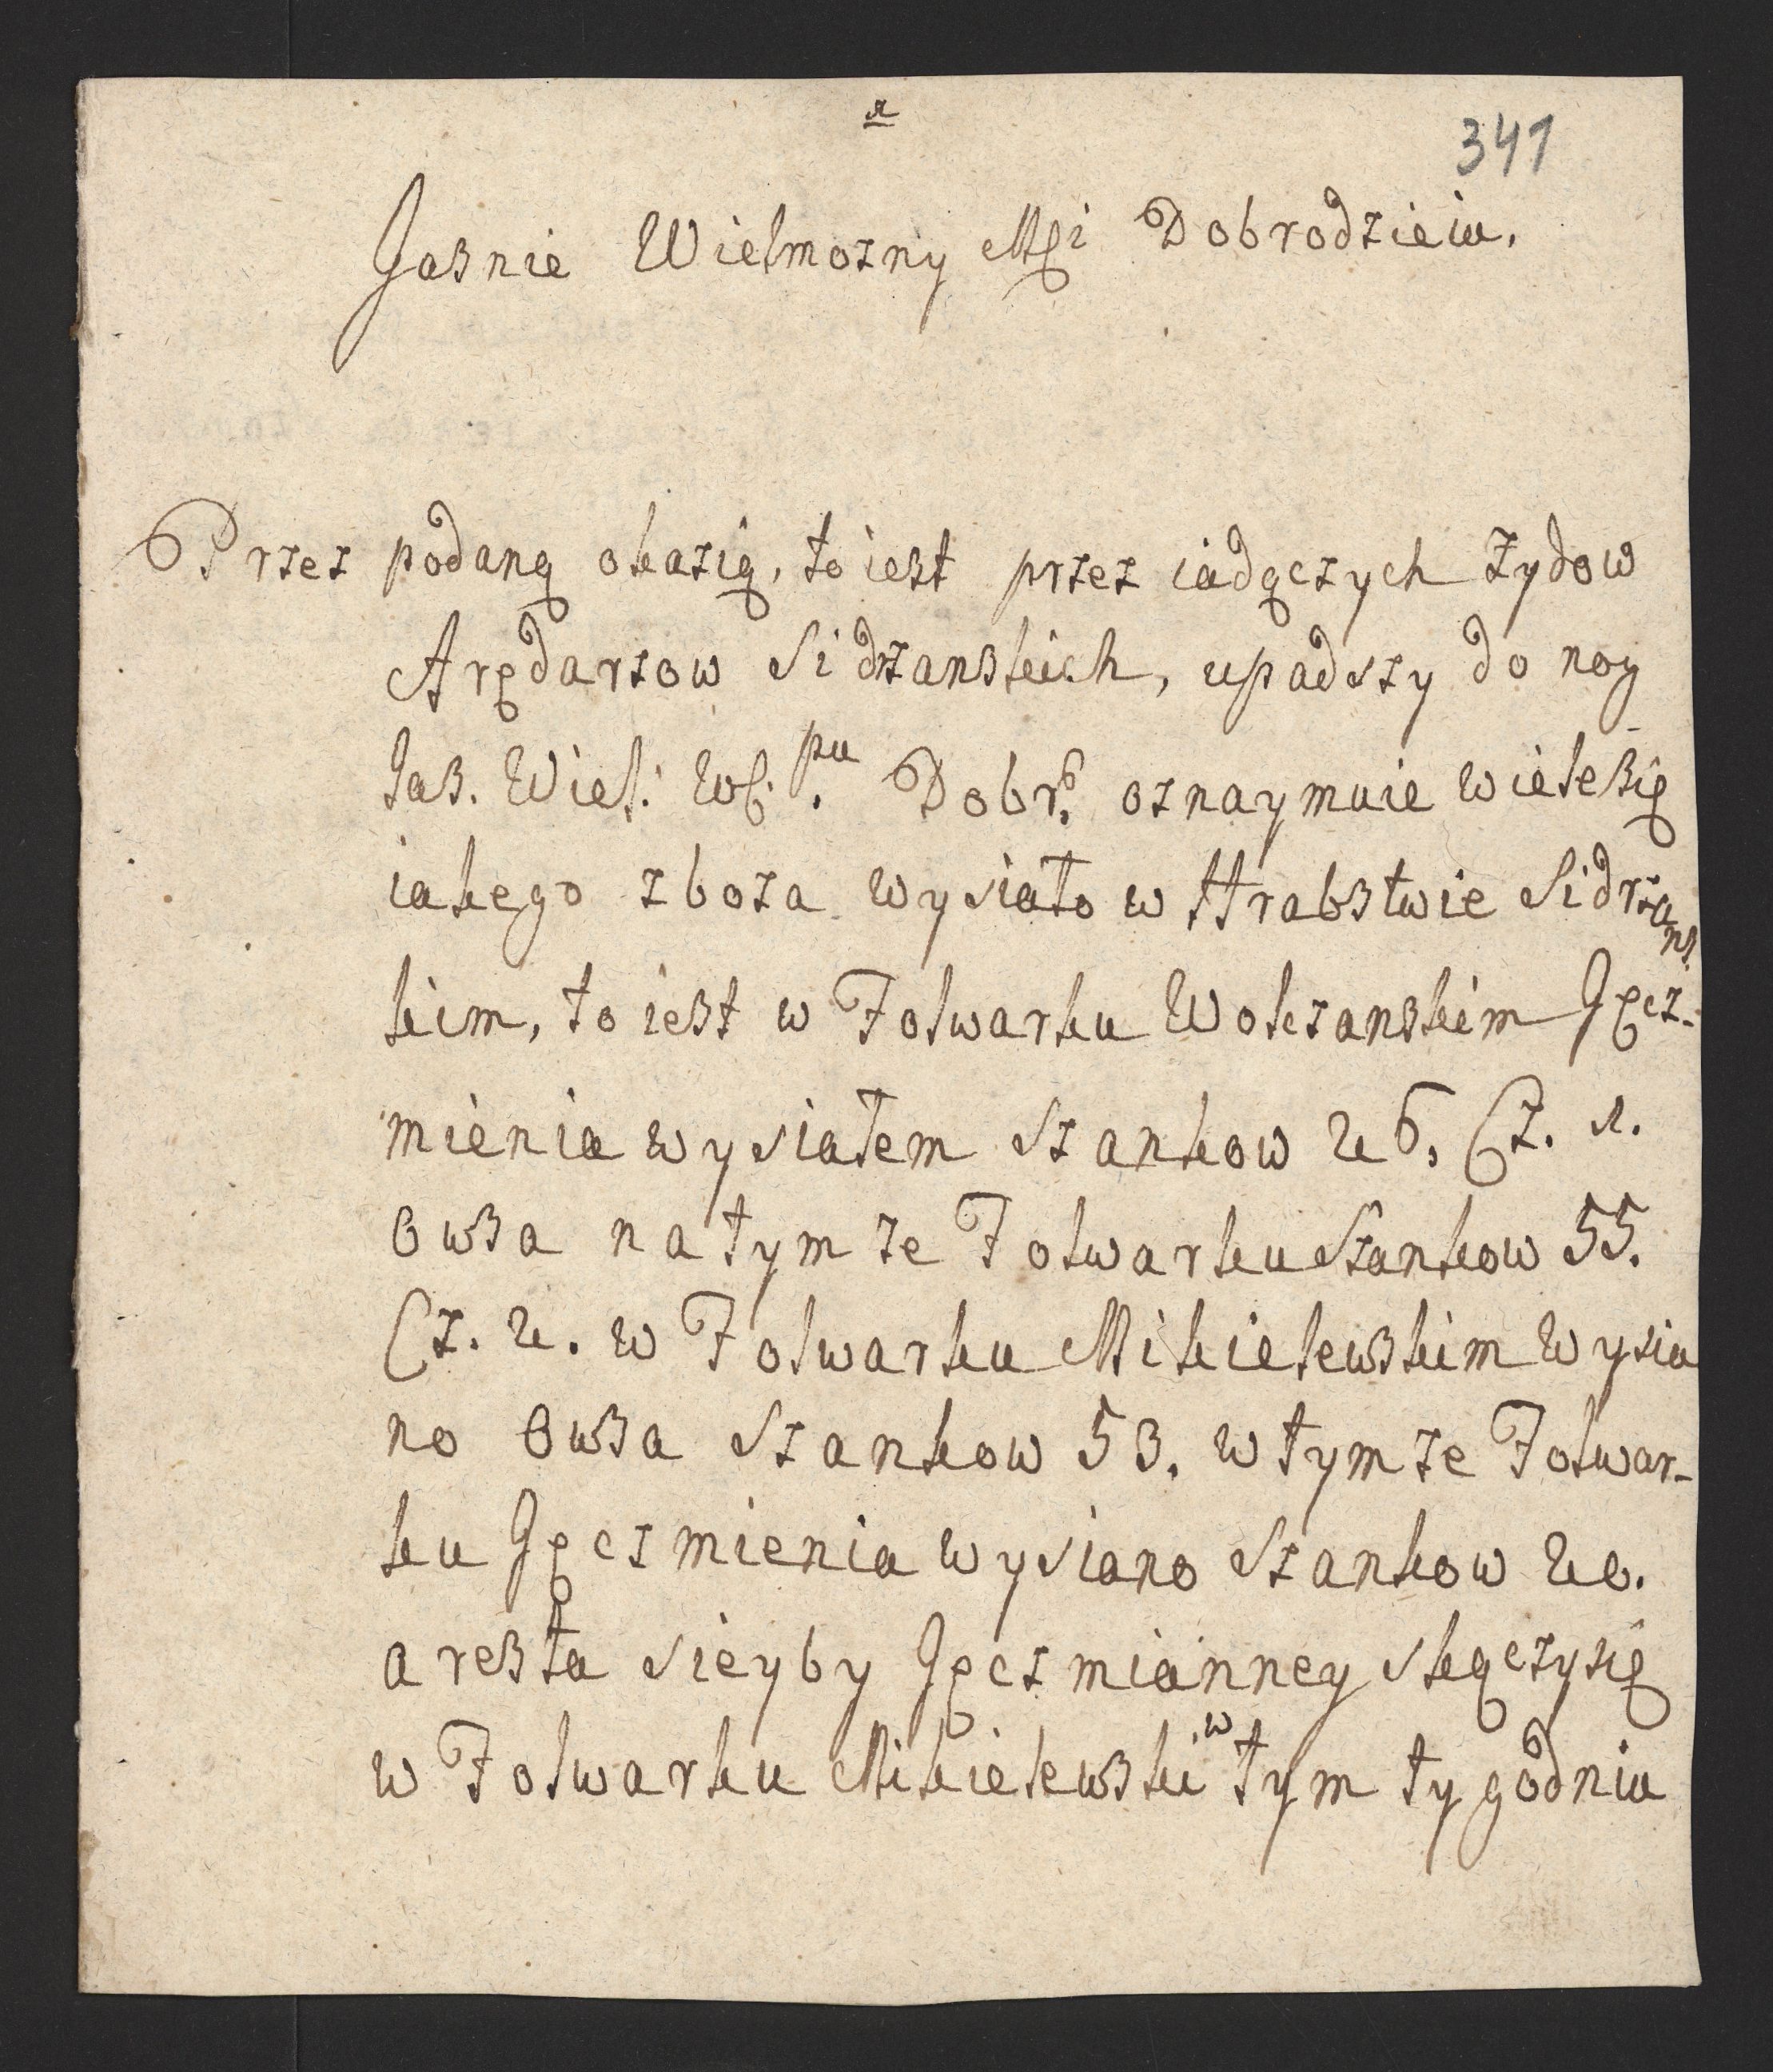 341
Jasnie Wielmozny Msci Dobrodzieiu.
Przez podaną okazią, to iest przez iadączych Zydow
Arędarzow Sidrzanskich, upadszy do nog
Jas. Wiel: WP. pu Dobr: oznaymuie wielesię
iakego zboza wysiało w Hrabstwie Sidrzans
kim, to iest w Folwarku Wolczanskim Jęcz-
mienia wysiałem Szankow 26. Cz. 1.
Owsa na tym ze Folwarku Szankow 55.
Cz. 2. w Folwarku Mikielewskim wysia
no Owsa Szankow 53. w tym ze Folwar-
ku Jęczmienia wysiano Szankow 20.
a resta Sieyby Jęczmianney skączysię
w Folwarku Mikielewski w tym tygodniu